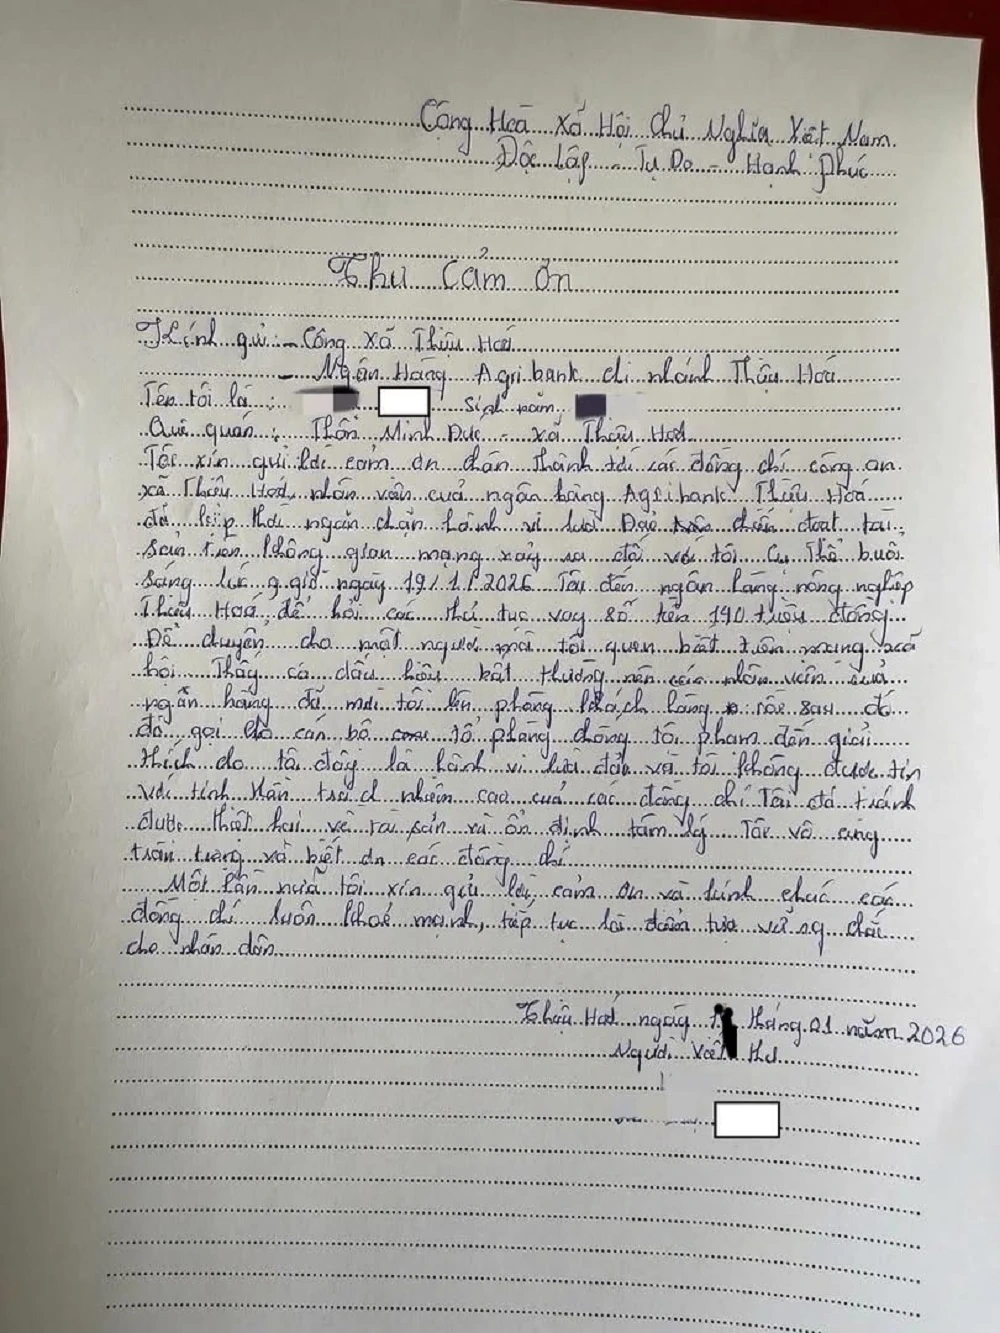 Cộng Hoà Xã Hội Chủ Nghĩa Việt Nam
Độc Lập - Tự Do - Hạnh Phúc
Thư Cảm Ơn
Kính gửi: - Công xã Thiệu Hoá
- Ngân Hàng Agribank chi nhánh Thiệu Hoá
Tên tôi là: Sinh năm
Quê quán: Thôn Minh Đức - xã Thiệu Hoá
Tôi xin gửi lời cảm ơn chân thành tới các đồng chí công an
xã Thiệu Hoá, nhân viên của ngân hàng Agribank Thiệu Hoá
đã kịp thời ngăn chặn hành vi lừa Đạo chiếm đoạt tài
sản trên không gian mạng xảy ra đối với tôi. Cụ Thể buổi
sáng lúc 9 giờ ngày 19/1/2026 Tôi đến ngân hàng nông nghiệp
Thiệu Hoá để hỏi các thủ tục vay số tiền 190 triệu đồng
Để chuyển cho một người mà tôi quen biết trên mạng xã
hội. Thấy có dấu hiệu bất thường nên các nhân viên của
ngân hàng đã mời tôi lên phòng khách hàng rồi sau đó
đã gọi cán bộ tổ phòng chống tội phạm đến giải
thích cho tôi đây là hành vi lừa đảo và tôi không được tin
với tinh thần trách nhiệm cao của các đồng chí Tôi đã tránh
được thiệt hại về tài sản và ổn định tâm lý Tôi vô cùng
trân trọng và biết ơn các đồng chí
Một lần nữa tôi xin gửi lời cảm ơn và kính chúc các
đồng chí luôn khoẻ mạnh, tiếp tục là điểm tựa vững chắc
cho nhân dân
Thiệu Hoá ngày tháng 01 năm 2026
Người viết thư